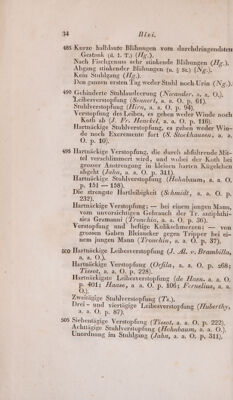 34 Blei.
485 Kurze halblaute Blähungen vom durchdringendsten
Gestank (d. 1. T.) (Hg.).
Nach Fischgenuss sehr stinkende Blähungen (Hg.).
Abgang stinkender Blähungen (n. ½ St.) (Ng.).
Kein Stuhlgang (Hg.).
Den ganzen ersten Tag weder Stuhl noch Urin (Ng.).
490 Gehinderte Stuhlausleerung (Nicander, a. a. O.).
Leibesverstopfung (Sennert, a. a. O. p. 61).
Stuhlverstopfung (Hirn, a. a. O. p. 94).
Verstopfung des Leibes, es gehen weder Winde noch
Koth ab (J. Fr. Henckel, a. a. O. p. 116).
Hartnäckige Stuhlverstopfung, es gehen weder Win-
de noch Excremente fort (S. Stockhausen, a. a.
O. p. 10).
495 Hartnäckige Verstopfung, die durch abführende Mit-
tel verschlimmert wird, und wobei der Koth bei
grosser Anstrengung in kleinen harten Kügelchen
abgeht (Jahn, a. a. O. p. 311).
Hartnäckige Stuhlverstopfung (Hohnbaum, a. a. O.
p. 151 — 158).
Die strengste Hartleibigkeit (Schmidt, a. a. O. p.
232).
Hartnäckige Verstopfung; — bei einem jungen Mann,
vom unvorsichtigen Gebrauch der Tr. antiphthi-
sica Gramanni (Tronchin, a. a. O. p. 36).
Verstopfung und heftige Kolikschmerzen; — von
grossen Gaben Bleizucker gegen Tripper bei ei-
nem jungen Mann (Tronchin, a. a. O. p. 37).
500 Hartnäckige Leibesverstopfung (J. Al. v. Brambilla,
a. a. O.).
Hartnäckige Verstopfung (Orfila, a. a. O. p. 268;
Tissot, a. a. O. p. 228).
Hartnäckigste Leibesverstopfung (de Haen, a. a. O.
p. 401; Hause, a. a. O. p. 106; Fernelius, a. a.
O.).
Zweitägige Stuhlverstopfung (Ts.).
Drei- und viertägige Leibesverstopfung (Huberthy,
a. a. O. p. 87).
505 Siebentägige Verstopfung (Tissot, a. a. O. p. 222).
Achttägige Stuhlverstopfung (Hohnbaum, a. a. O.).
Unordnung im Stuhlgang (Jahn, a. a. O. p. 311).